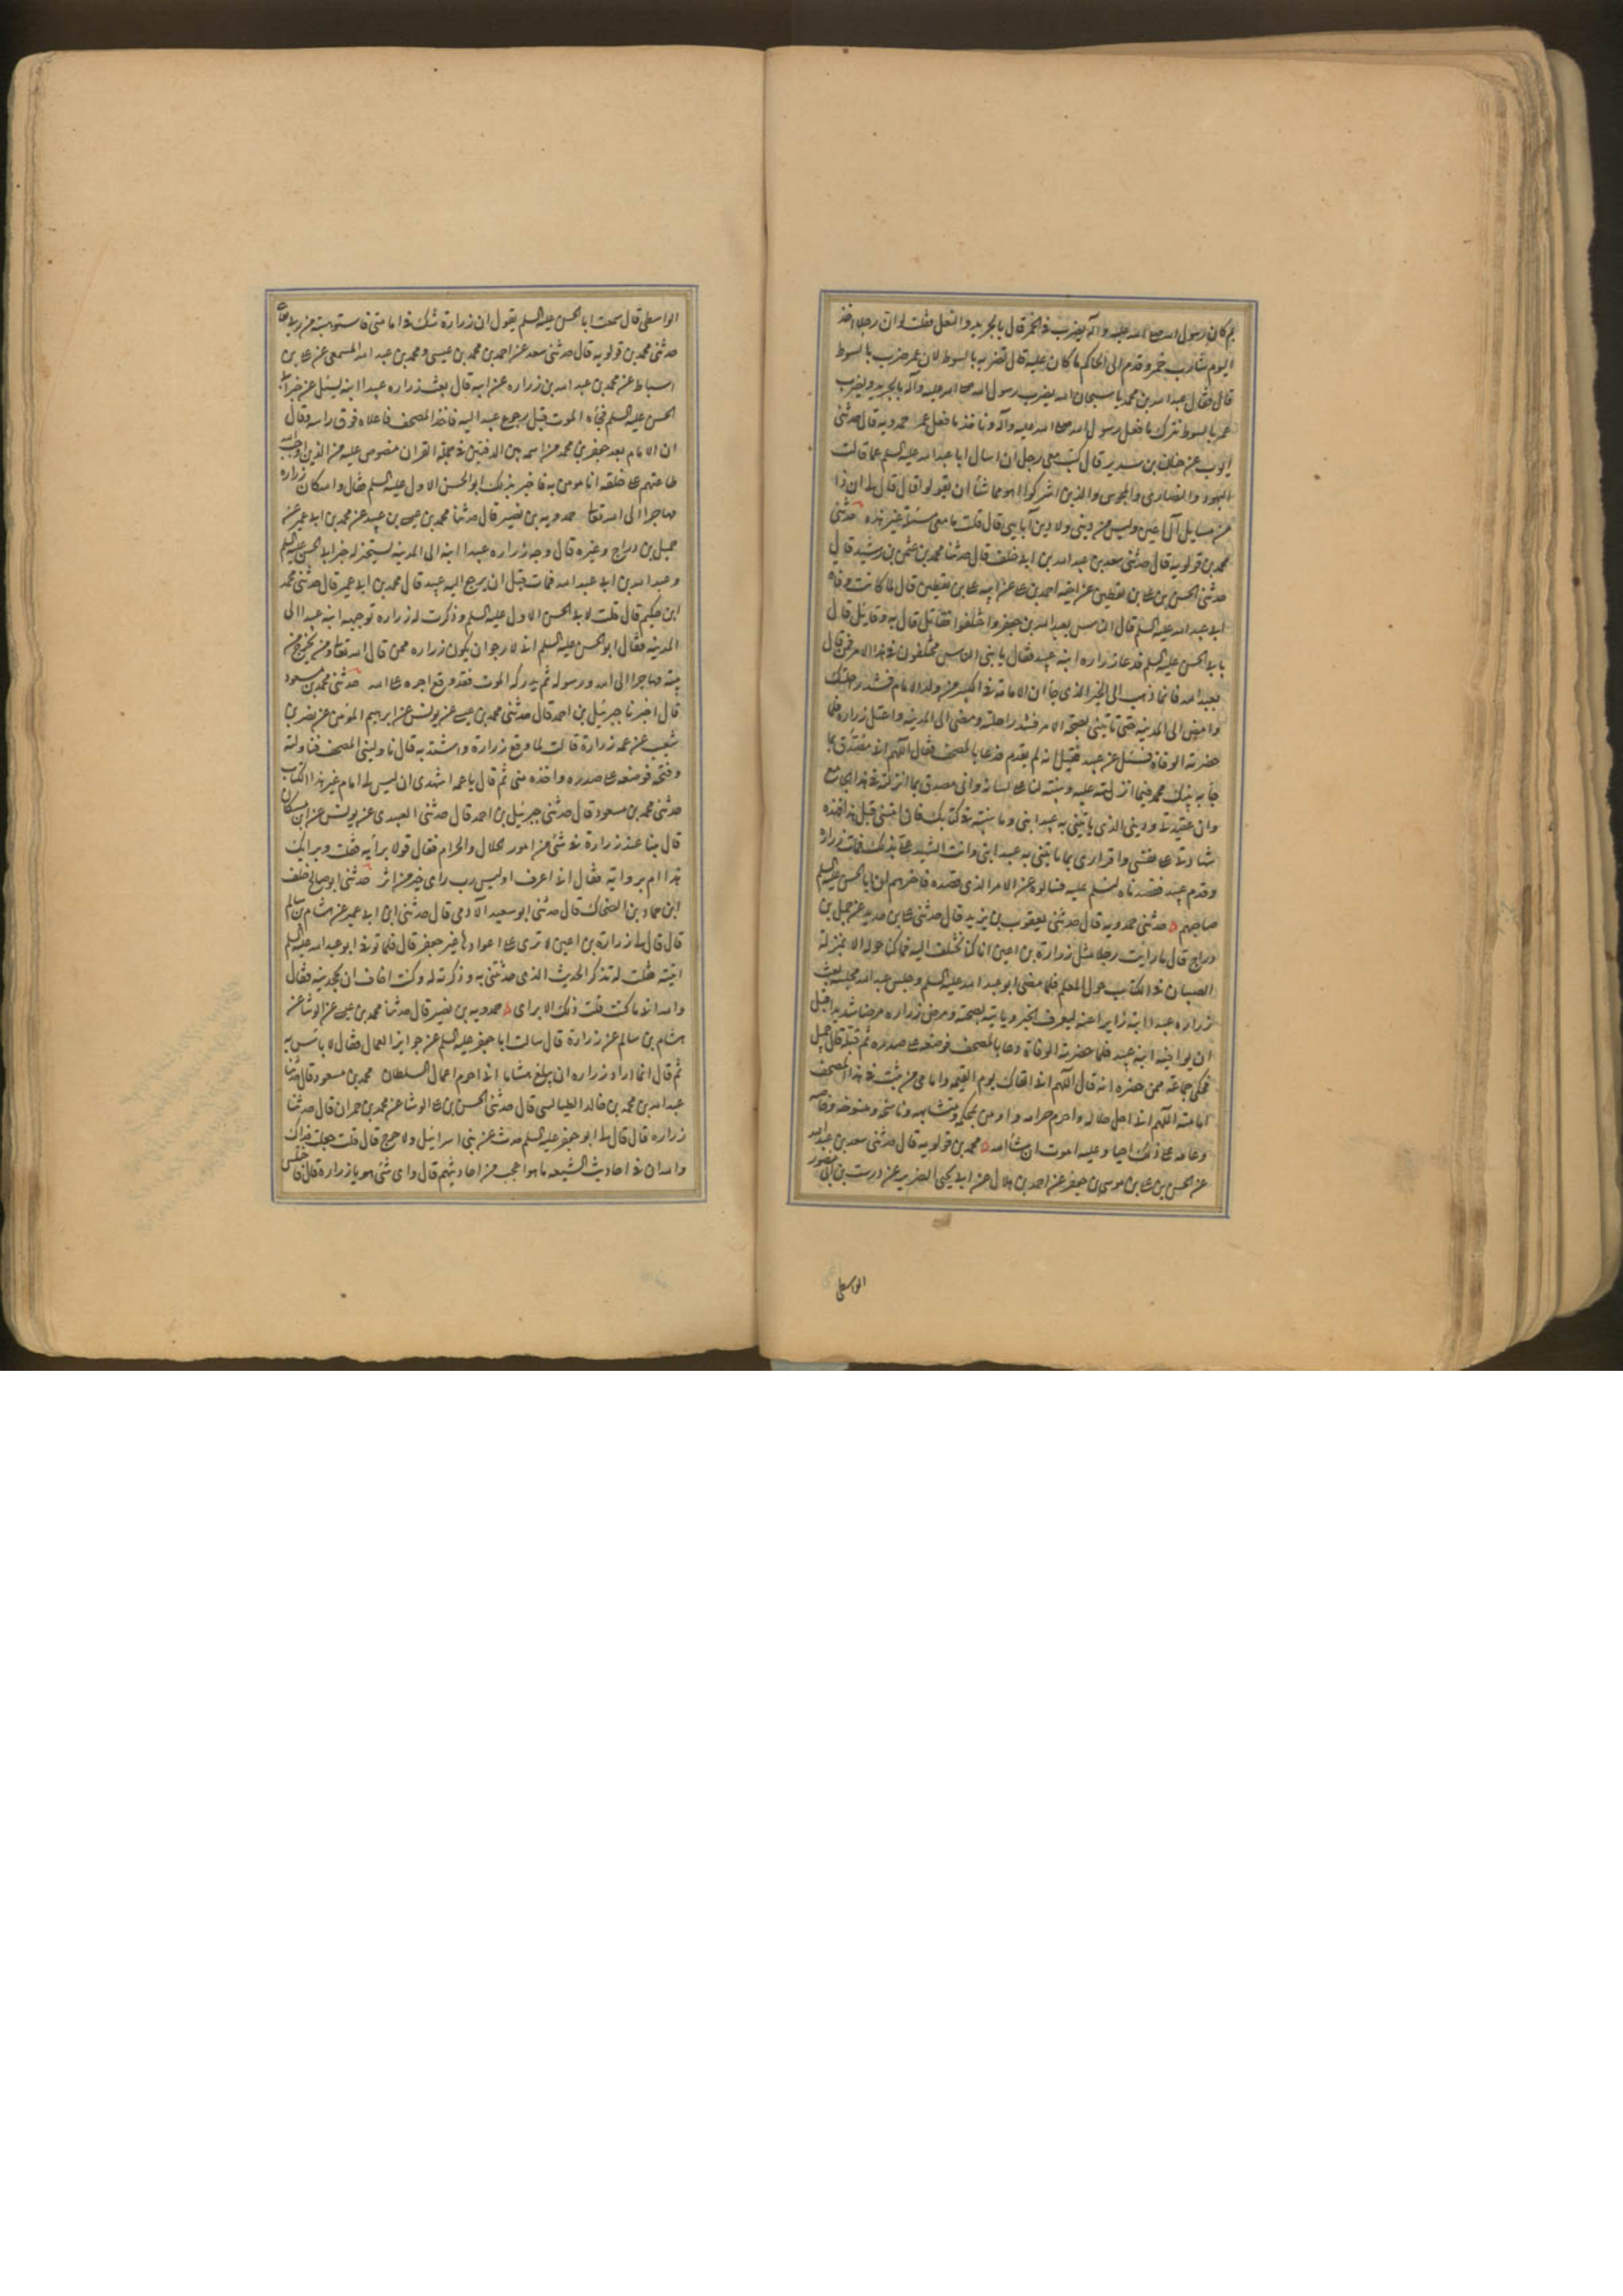 بم كان رسول الله صلى الله عليه وآله يضرب في الخمر قال بالجريد والنعل فقلت لو ان رجلا اخذ
اليوم شارب خمر وقدم الى الحاكم ما كان عليه قال لضربه بالسوط لان عمر ضرب بالسوط
قال فقال عبد الله بن محمد يا سبحان الله يضرب رسول الله صلى الله عليه وآله بالجريد ويضرب
عمر بالسوط نترك ما فعل رسول الله صلى الله عليه وآله وناخذ ما فعل عمر حمدويه قال حدثني
ايوب عن حنان بن سدير قال كتب معي رجل ان اسال ابا عبد الله عليه السلم عما قالت
اليهود والنصارى والمجوس والذين اشركوا اهو مما شأ ان يقولوا قال قال لي ان ذا
من مسايل آل اعين ليس من ديني ولا دين آبايي قال قلت ما معي مسئلة غير هذه حدثني
محمد بن قولويه قال حدثني سعد بن عبد الله بن ابي خلف قال حدثنا محمد بن عثمن بن رشيد قال
حدثني الحسن بن علي بن يقطين عن اخيه احمد بن علي عن ابيه علي بن يقطين قال لما كانت وفاة
ابي عبد الله عليه السلم قال الناس بعبد الله بن جعفر واختلفوا فقائل قال به وقائل قال
بابي الحسن عليه السلم فدعا زراره ابنه عبيد فقال يا بني الناس مختلفون في هذا الامر فمن قال
بعبد الله فانما ذهب الى الخبر الذي جأ ان الامامة في الكبير من ولد الامام فشد راحلتك
وامض الى المدينه حتى تاتيني بصحة الامر فشد راحلته ومضى الى المدينه واعتل زراره فلما
حضرته الوفاة فسئل عن عبيد فقيل انه لم يقدم فدعا بالمصحف فقال اللهم اني مصدق بما
جأ به نبيك محمد فيما انزلته عليه وبينته لنا على لسانه واني مصدق بما انزلته في هذا الجامع
وان عقيدتي وديني الذي ياتيني به عبيد ابني وما بينته في كتابك فان امتني قبل هذا فهذه
شهادتي على نفسي واقراري بما ياتيني به عبيد ابني وانت الشهيد علي بذلك فمات زراره
وقدم عبيد فقصدناه لنسلم عليه فسالوه عن الامر الذي قصده فاخبرهم ان ابا الحسن عليه السلم
صاحبهم حدثني حمدويه قال حدثني يعقوب بن يزيد قال حدثني علي بن حديد عن جميل بن
دراج قال ما رايت رجلا مثل زرارة بن اعين انا كنا نختلف اليه فما كنا حوله الا بمنزلة
الصبيان في الكتاب حول المعلم فلما مضى ابو عبد الله عليه السلم وجلس عبد الله مجلسه بعث
زراره عبيدا ابنه زايرا عنه ليعرف الخبر وياتيه بصحته ومرض زراره مرضا شديدا قبل
ان يوافيه ابنه عبيد فلما حضرته الوفاة دعا بالمصحف فوضعه على صدره ثم قبله قال جميل
فحكى جماعة ممن حضره انه قال اللهم اني القاك يوم القيمه وامامي من ثبت في هذا المصحف
امامته اللهم اني احل حلاله واحرم حرامه واومن بمحكمه ومتشابهه وناسخه ومنسوخه وخاصه
وعامه على ذلك احيا وعليه اموت ان شأ الله محمد بن قولويه قال حدثني سعد بن عبد الله
عن الحسن بن علي بن موسى بن جعفر عن احمد بن هلال عن ابي يحيى الضرير عن درست بن ابي منصور
الواسطي
الواسطي قال سمعت ابا الحسن عليه السلم يقول ان زرارة شك في امامتي فاستوهبته من ربي تعالى
حدثني محمد بن قولويه قال حدثني سعد عن احمد بن محمد بن عيسى ومحمد بن عبد الله المسمعي عن علي بن
اسباط عن محمد بن عبد الله بن زراره عن ابيه قال بعث زراره عبيدا ابنه ليسئل عن خبر ابي
الحسن عليه السلم فجأه الموت قبل رجوع عبيد اليه فاخذ المصحف فاعلاه فوق راسه وقال
ان الامام بعد جعفر بن محمد من اسمه بين الدفتين في جملة القران منصوص عليه من الذين اوجب الله
طاعتهم على خلقه انا مومن به فاخبر بذلك ابو الحسن الاول عليه السلم فقال والله كان زراره
مهاجرا الى الله تعالى حمدويه بن نصير قال حدثنا محمد بن عيسى بن عبيد عن محمد بن ابي عمير عن
جميل بن دراج وغيره قال وجه زراره عبيدا ابنه الى المدينه يستخبر له خبر ابي الحسن عليه السلم
وعبد الله بن ابي عبد الله فمات قبل ان يرجع اليه عبيد قال محمد بن ابي عمير قال حدثني محمد
ابن حكيم قال قلت لابي الحسن الاول عليه السلم وذكرت له زراره توجيهه ابنه عبيدا الى
المدينه فقال ابو الحسن عليه السلم اني لارجو ان يكون زراره ممن قال الله تعالى ومن يخرج من
بيته مهاجرا الى الله ورسوله ثم يدركه الموت فقد وقع اجره على الله حدثني محمد بن مسعود
قال اخبرنا جبرئيل بن احمد قال حدثني محمد بن عيسى عن يونس عن ابرهيم المؤمن عن نضر بن
شعيب عن عمة زرارة قالت لما وقع زرارة واشتد به قال ناوليني المصحف فناولته
وفتحته فوضعه على صدره واخذه مني ثم قال يا عمه اشهدي ان ليس لي امام غير هذا الكتاب
حدثني محمد بن مسعود قال حدثني جبرئيل بن احمد قال حدثني العبيدي عن يونس عن ابن مسكان
قال تنا عند زرارة في شئ من امور الحلال والحرام فقال قولا برأيه فقلت وبرايك
هذا ام بروايه فقال اني اعرف اوليس رب راى خير من اثر حدثني ابو صالح خلف
ابن حماد بن الضحاك قال حدثني ابو سعيد الآدمي قال حدثني ابن ابي عمير عن هشام بن سالم
قال قال لي زرارة بن اعين لا ترى على اعوادها غير جعفر قال فلما توفي ابو عبد الله عليه السلم
اتيته فقلت له تذكر الحديث الذي حدثتني به وذكرته له وكنت اخاف ان يجحدنيه فقال
والله اني ما كنت قلت ذلك الا براى حمدويه بن نصير قال حدثنا محمد بن عيسى عن الوشا عن
هشام بن سالم عن زرارة قال سالت ابا جعفر عليه السلم عن جوايز العمال فقال لا باس به
ثم قال انما اراد زراره ان يبلغ هشاما اني احرم اعمال السلطان محمد بن مسعود قال حدثنا
عبد الله بن محمد بن خالد الطيالسي قال حدثني الحسن بن علي الوشا عن محمد بن حمران قال حدثنا
زراره قال قال لي ابو جعفر عليه السلم حدث عن بني اسرائيل ولا حرج قال قلت جعلت فداك
والله ان في احاديث الشيعه ما هو اعجب من احاديثهم قال واى شئ هو يا زرارة قال فاختلس